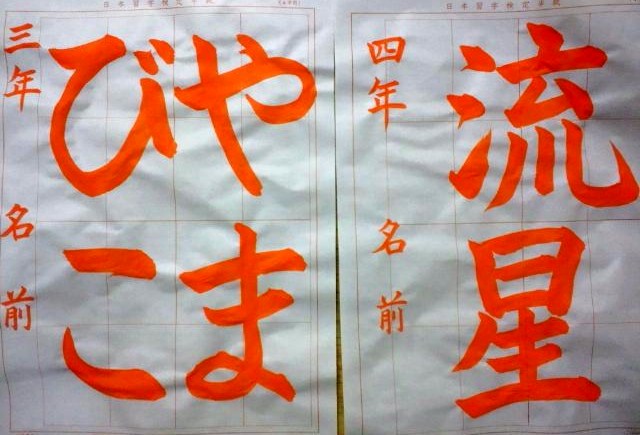 日本習字検定半紙
流星
四年 名前
日本習字検定半紙
やま
びこ
三年 名前